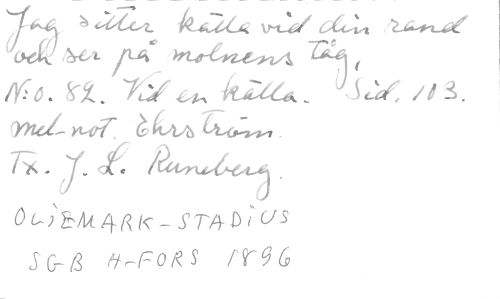 Jag sitter källa vid din rand
och ser på molnens tåg,
N:o. 82. Vid en källa. Sid. 103.
mel-not. Ehrström.
Tx. J. L. Runeberg.
OLIEMARK-STADIUS
SGB H-FORS 1896